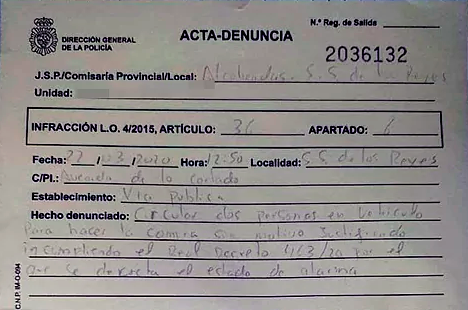 DIRECCIÓN GENERAL
DE LA POLICÍA
ACTA-DENUNCIA
N.º Reg. de Salida
2036132
J.S.P./Comisaría Provincial/Local: Alcobendas - S.S. de los Reyes
Unidad:
INFRACCIÓN L.O. 4/2015, ARTÍCULO: 36 APARTADO: 6
Fecha: 22 / 03 / 2020 Hora: 12:50 Localidad: S.S. de los Reyes
C/Pl.: Avenida de lo
Establecimiento: Via Publica
Hecho denunciado: Circular dos personas en Vehiculo
para hacer la compra sin motivo Justificado
incumpliendo el Real Decreto 463/20 por el
que se decreta el estado de alarma
C.N.P. IM-O-094